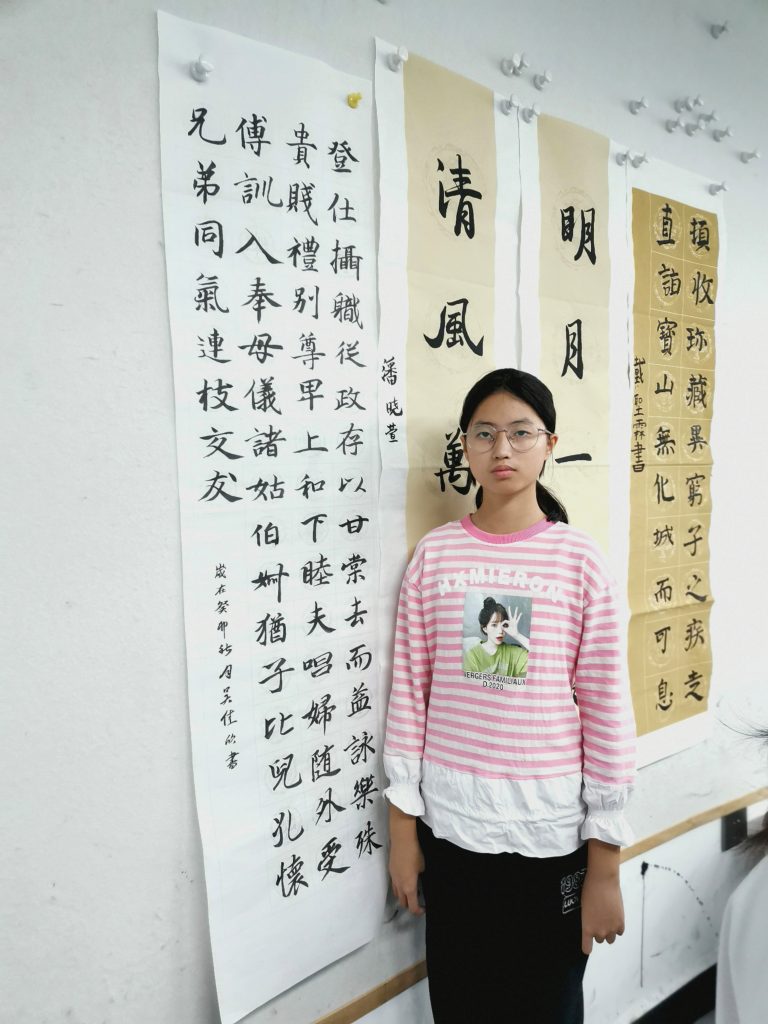 頓收珍藏異窮子之疾走
直詣寶山無化城而可息
戴聖霖書
明月一
清風萬
潘晓萱
登仕攝職從政存以甘棠去而益詠樂殊
貴賤禮別尊卑上和下睦夫唱婦随外受
傅訓入奉母儀諸姑伯叔猶子比兒孔懷
兄弟同氣連枝交友
歲在癸卯秋月吳佳欣書
HXMIERON
VERGERS FAMILIAUX
D.2020